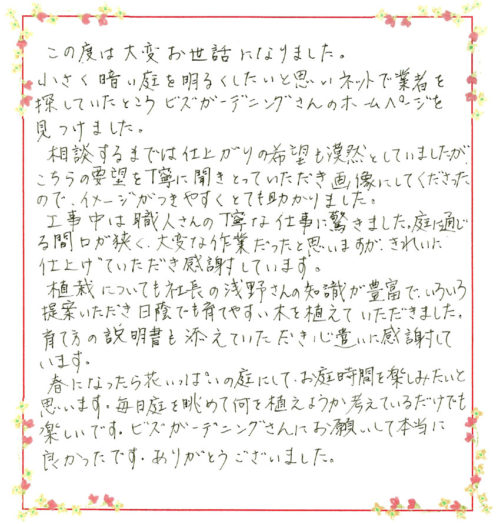 この度は大変お世話になりました。
小さく暗い庭を明るくしたいと思いネットで業者を
探していたところビズガーデニングさんのホームページを
見つけました。
相談するまでは仕上がりの希望も漠然としていましたが、
こちらの要望を丁寧に聞きとっていただき画像にしてくださった
ので、イメージがつきやすくとても助かりました。
工事中は職人さんの丁寧な仕事に驚きました。庭に通じ
る間口が狭く、大変な作業だったと思いますが、きれいに
仕上げていただき感謝しています。
植栽についても社長の浅野さんの知識が豊富で、いろいろ
提案いただき日陰でも育てやすい木を植えていただきました。
育て方の説明書も添えていただき心遣いに感謝して
います。
春になったら花いっぱいの庭にして、お庭時間を楽しみたいと
思います。毎日庭を眺めて何を植えようか考えているだけでも
楽しいです。ビズガーデニングさんにお願いして本当に
良かったです。ありがとうございました。